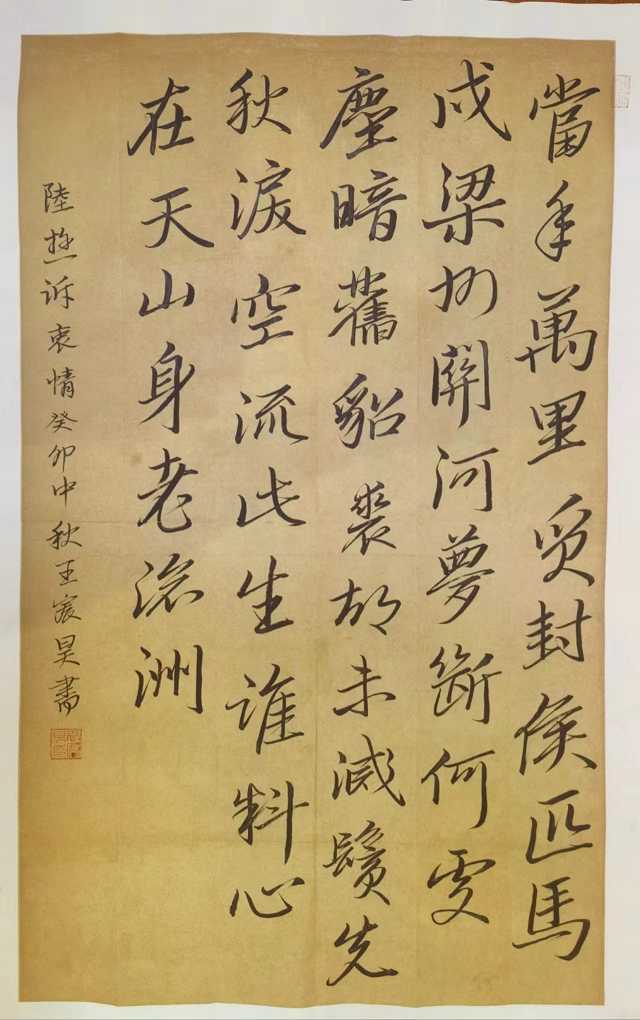 當年萬里覓封侯匹馬
戍梁州關河夢斷何處
塵暗舊貂裘胡未滅鬢先
秋淚空流此生誰料心
在天山身老滄洲
陸游訴衷情癸卯中秋王宸昊書